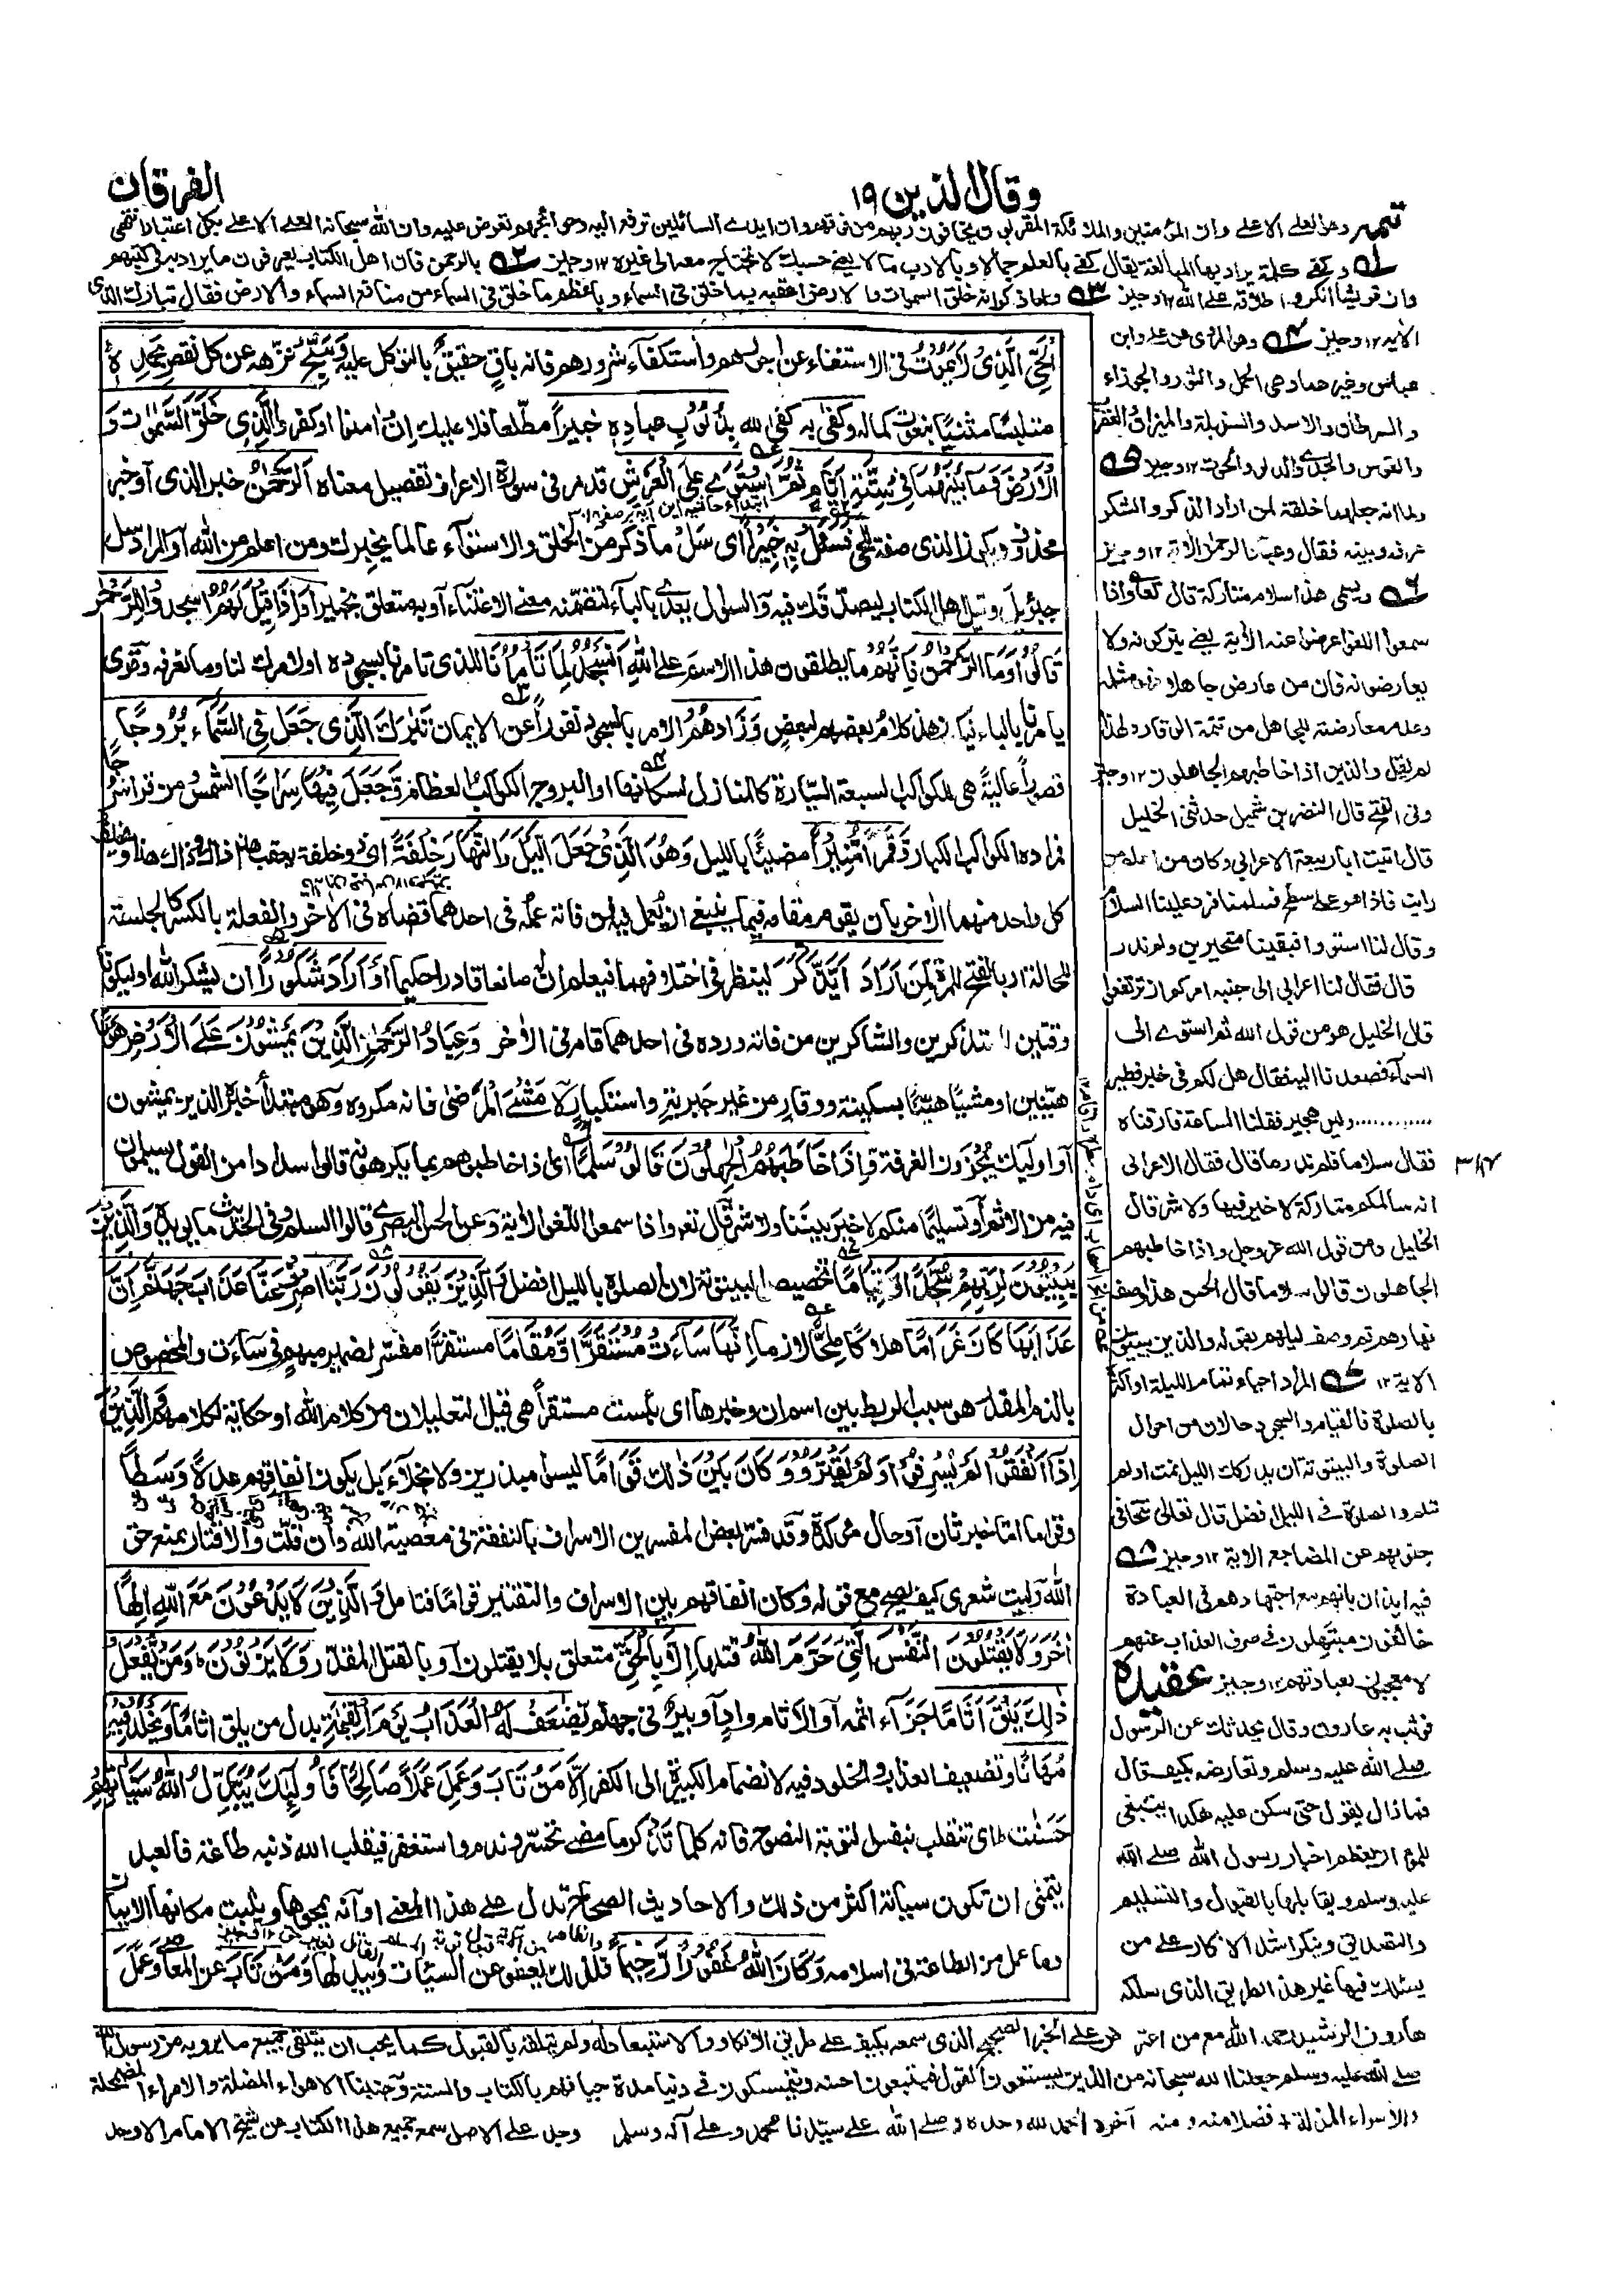 وقال الذين ١٩
الفرقان
وهو العلي الاعلى وان المؤمنين والملائكة المقربون يخافون ربهم من فوقهم وان ايدي السائلين ترفع اليه وحوائجهم تعرض عليه وان الله سبحانه العلي الاعلى بكل اعتبار انتهى
وكفى كلمة يراد بها المبالغة يقال كفى بالعلم جمالا وبالادب مالا يعني حسبك لا تحتاج معه الى غيره ١٢ وجيز بالرحمن فان اهل الكتاب يعرفون ما يرادفه في كتبهم
وان قريشا انكروا اطلاقه على الله ١٢ وجيز ولما ذكر انه خلق السموات والارض اعقبه بما خلق في السماء من منافع السماء والارض فقال تبارك الذي
الحَيِّ الَّذِي لَا يَمُوتُ في الاستغناء عن اجرهم واستكفاء شرورهم فانه باق حقيق بالتوكل عليه وَسَبِّحْ نزهه عن كل نقص بِحَمْدِهِ
متلبسا مثنيا بنعوت كماله وَكَفَى بِهِ كفى الله بِذُنُوبِ عِبَادِهِ خَبِيراً مطلعا فلا عليك ان امنوا او كفروا الَّذِي خَلَقَ السَّمٰوٰتِ وَ
الْأَرْضَ وَمَا بَيْنَهُمَا فِي سِتَّةِ أَيَّامٍ ثُمَّ اسْتَوَى عَلَى الْعَرْشِ قد مر في سورة الاعراف تفصيل معناه الرَّحْمٰنُ خبر الذي او خبر
محذوف ويكون الذي صفة للحي فَسْئَلْ بِهِ خَبِيْراً اي سل ما ذكر من الخلق والاستواء عالما يخبرك ومن اعلم من الله او المراد سل
جبرئيل او سل اهل الكتاب ليصدقك فيه والسؤال يعدى بالباء لتضمنه معنى الاعتناء او به متعلق بخبيرا وَإِذَا قِيْلَ لَهُمُ اسْجُدُوا لِلرَّحْمٰنِ
قَالُوْا وَمَا الرَّحْمٰنُ فانهم ما يطلقون هذا الاسم على الله أَنَسْجُدُ لِمَا تَأْمُرُنَا للذي تامرنا بسجوده او لامرك لنا وما نعرفه وقرئ
يامرنا بالياء فيكون هذا كلام بعضهم لبعض وَزَادَهُمْ الامر بالسجود نفوراً عن الايمان تَبٰرَكَ الَّذِي جَعَلَ فِي السَّمَاءِ بُرُوجًا
قصوراً عالية هي للكواكب السبعة السيارة كالمنازل لسكانها او البروج الكواكب العظام وَّجَعَلَ فِيْهَا سِرَاجًا الشمس من قرأ سرجا
فمراده الكواكب الكبار وَقَمَرًا مُّنِيْرًا مضيئا بالليل وَهُوَ الَّذِي جَعَلَ اللَّيْلَ وَالنَّهَارَ خِلْفَةً اي ذوي خلفة يعقب هذا ذاك وذاك هذا ويخلف
كل واحد منهما الاخر بان يقوم مقامه فيما ينبغي ان يعمل فيه فمن فاته عمله في احدهما قضاه في الاخر والفعلة بالكسر كالجلسة
للحالة وبالفتح للمرة لِمَنْ أَرَادَ أَنْ يَّذَّكَّرَ لينظر في اختلافهما فيعلم ان له صانعا قادرا حكيما أَوْ أَرَادَ شُكُورًا ان يشكر الله او ليكونا
وقتين للمتذكرين والشاكرين من فاته ورده في احدهما قام في الاخر وَعِبَادُ الرَّحْمٰنِ الَّذِيْنَ يَمْشُوْنَ عَلَى الْأَرْضِ هَوْنًا
هينين او مشيا هينا بسكينة ووقار من غير جبرية واستكبار لا مشي المرضى فانه مكروه وهو مبتدأ خبره الذين يمشون
او اولئك يجزون الغرفة وَّإِذَا خَاطَبَهُمُ الْجٰهِلُوْنَ قَالُوْا سَلٰمًا اي اذا خاطبوهم بما يكرهونه قالوا سدادا من القول يسلمون
فيه من الاثم او تسليما منكم لا خير بيننا ولا شر قال تعالى واذا سمعوا اللغو الاية وعن الحسن البصري قالوا السلام وفي الحديث ما يؤيده وَالَّذِيْنَ
يَبِيْتُوْنَ لِرَبِّهِمْ سُجَّدًا وَّقِيَامًا تخصيص البيتوتة لان الصلوة بالليل افضل وَالَّذِيْنَ يَقُوْلُوْنَ رَبَّنَا اصْرِفْ عَنَّا عَذَابَ جَهَنَّمَ إِنَّ
عَذَابَهَا كَانَ غَرَامًا هلاكا ملحا لازما إِنَّهَا سَاءَتْ مُسْتَقَرًّا وَّمُقَامًا مستقرا مفسر لضمير مبهم في ساءت والمخصوص
بالذم المقدر هو سبب الربط بين اسم ان وخبرها اي بئست مستقرا هي قيل التعليلان من كلام الله او حكاية لكلامهم وَالَّذِيْنَ
إِذَا أَنْفَقُوْا لَمْ يُسْرِفُوْا وَلَمْ يَقْتُرُوْا وَكَانَ بَيْنَ ذٰلِكَ قَوَامًا ليسوا مبذرين ولا بخلاء بل يكون انفاقهم عدلا وسطا
وقواما اما خبر ثان او حال مؤكدة وقد فسر بعض المفسرين الاسراف بالنفقة في معصية الله وان قلت والاقتار بمنع حق
الله وليت شعري كيف يصح مع قوله وكان انفاقهم بين الاسراف والتقتير قواما فتامل وَالَّذِيْنَ لَا يَدْعُوْنَ مَعَ اللهِ إِلٰهًا
اٰخَرَ وَلَا يَقْتُلُوْنَ النَّفْسَ الَّتِيْ حَرَّمَ اللهُ قتلها إِلَّا بِالْحَقِّ متعلق بلا يقتلون او بالقتل المقدر وَلَا يَزْنُوْنَ وَمَنْ يَّفْعَلْ
ذٰلِكَ يَلْقَ أَثَامًا جزاء اثمه او الاثام واد او بير في جهنم يُضٰعَفْ لَهُ الْعَذَابُ يَوْمَ الْقِيٰمَةِ بدل من يلق اثاما وَيَخْلُدْ فِيْهِ
مُهَانًا وتضعيف العذاب والخلود فيه لانضمام الكبيرة الى الكفر إِلَّا مَنْ تَابَ وَعَمِلَ عَمَلًا صَالِحًا فَأُولٰئِكَ يُبَدِّلُ اللهُ سَيِّاٰتِهِمْ
حَسَنٰتٍ اي تنقلب بنفس التوبة النصوح فانه كلما تذكر ما مضى تحسر وندم واستغفر فيقلب الله ذنبه طاعة فالعبد
يتمنى ان تكون سياته اكثر من ذلك والاحاديث الصحاح تدل على هذا المعنى او انه يمحوها ويثبت مكانها الايمان
وما عمل من الطاعة في اسلامه وَكَانَ اللهُ غَفُوْرًا رَّحِيْمًا فلذلك يعفو عن السيئات ويبدلها وَمَنْ تَابَ عن المعاصي وَعَمِلَ
الاية ١٢ وجيز وهو المروي عن علي وابن
عباس وغيرهما وهي الحمل والثور والجوزاء
والسرطان والاسد والسنبلة والميزان والعقرب
والقوس والجدي والدلو والحوت ١٢ وجيز
ولما انه جعلهما خلفة لمن اراد الذكر والشكر
عرفه وبينه فقال وعباد الرحمن الاية ١٢ وجيز
ويسمى هذا سلام متاركة قال تعالى واذا
سمعوا اللغو اعرضوا عنه الاية يعني يتركونه ولا
يعارضونه فان من عارض جاهلا فهو مثله
وعدم معارضته للجاهل من تتمة الوقار ولهذا
لم يقل والذين اذا خاطبهم الجاهلون ١٢ وجيز
وفي الفتح قال النضر بن شميل حدثني الخليل
قال اتيت ابا ربيعة الاعرابي وكان من اعلم من
رايت فاذا هو على سطح فسلمنا فرد علينا السلام
وقال لنا استووا فبقينا متحيرين ولم ندر
قال فقال لنا اعرابي الى جنبه امركم ان ترتفعوا
قال الخليل هو من قول الله ثم استوى الى
السماء فصعدنا اليه فقال هل لكم في خبز فطير
ولبن هجير فقلنا الساعة فارقناه
فقال سلاما فلم ندر ما قال فقال الاعرابي
انه سالمكم متاركة لا خير فيها ولا شر قال
الخليل وهو من قول الله عز وجل واذا خاطبهم
الجاهلون قالوا سلاما قال الحسن هذا وصف
نهارهم ثم وصف ليلهم بقوله والذين يبيتون
الاية ١٢ المراد احياء تمام الليلة او اكثرها
بالصلوة فالقيام والسجود حالان من احوال
الصلوة والبيتوتة ان يدركك الليل نمت او لم
تنم والصلوة في الليل افضل قال تعالى تتجافى
جنوبهم عن المضاجع الاية ١٢ وجيز
فيه ايذان بانهم مع اجتهادهم في العبادة
خائفون مبتهلون في صرف العذاب عنهم
لا معجبون بعبادتهم ١٢ وجيز عقيدة
فوثب به هارون وقال يحدثك عن الرسول
صلى الله عليه وسلم وتعارضه بكيف قال
فما زال يقول حتى سكن عليه هكذا ينبغي
للمرء ان يعظم اخبار رسول الله صلى الله
عليه وسلم ويقابلها بالقبول والتسليم
والتصديق وينكر اشد الانكار على من
يسلك فيها غير هذا الطريق الذي سلكه
هارون الرشيد رحمه الله مع من اعترض على الخبر الصحيح الذي سمعه بكيف على طريق الانكار والاستبعاد له ولم يتلقه بالقبول كما يجب ان يتلقى جميع ما يرويه من رسول الله
صلى الله عليه وسلم جعلنا الله سبحانه من الذين يستمعون القول فيتبعون احسنه ويتمسكون في دنياهم مدة حياتهم بالكتاب والسنة وجنبنا الاهواء المضلة والاراء المضمحلة
والاسواء المذلة فضلا منه ومنه آخره الحمد لله وحده وصلى الله على سيدنا محمد وعلى آله وسلم وجد على الاصل سمع جميع هذا الكتاب من شيخ الامام الاوحد